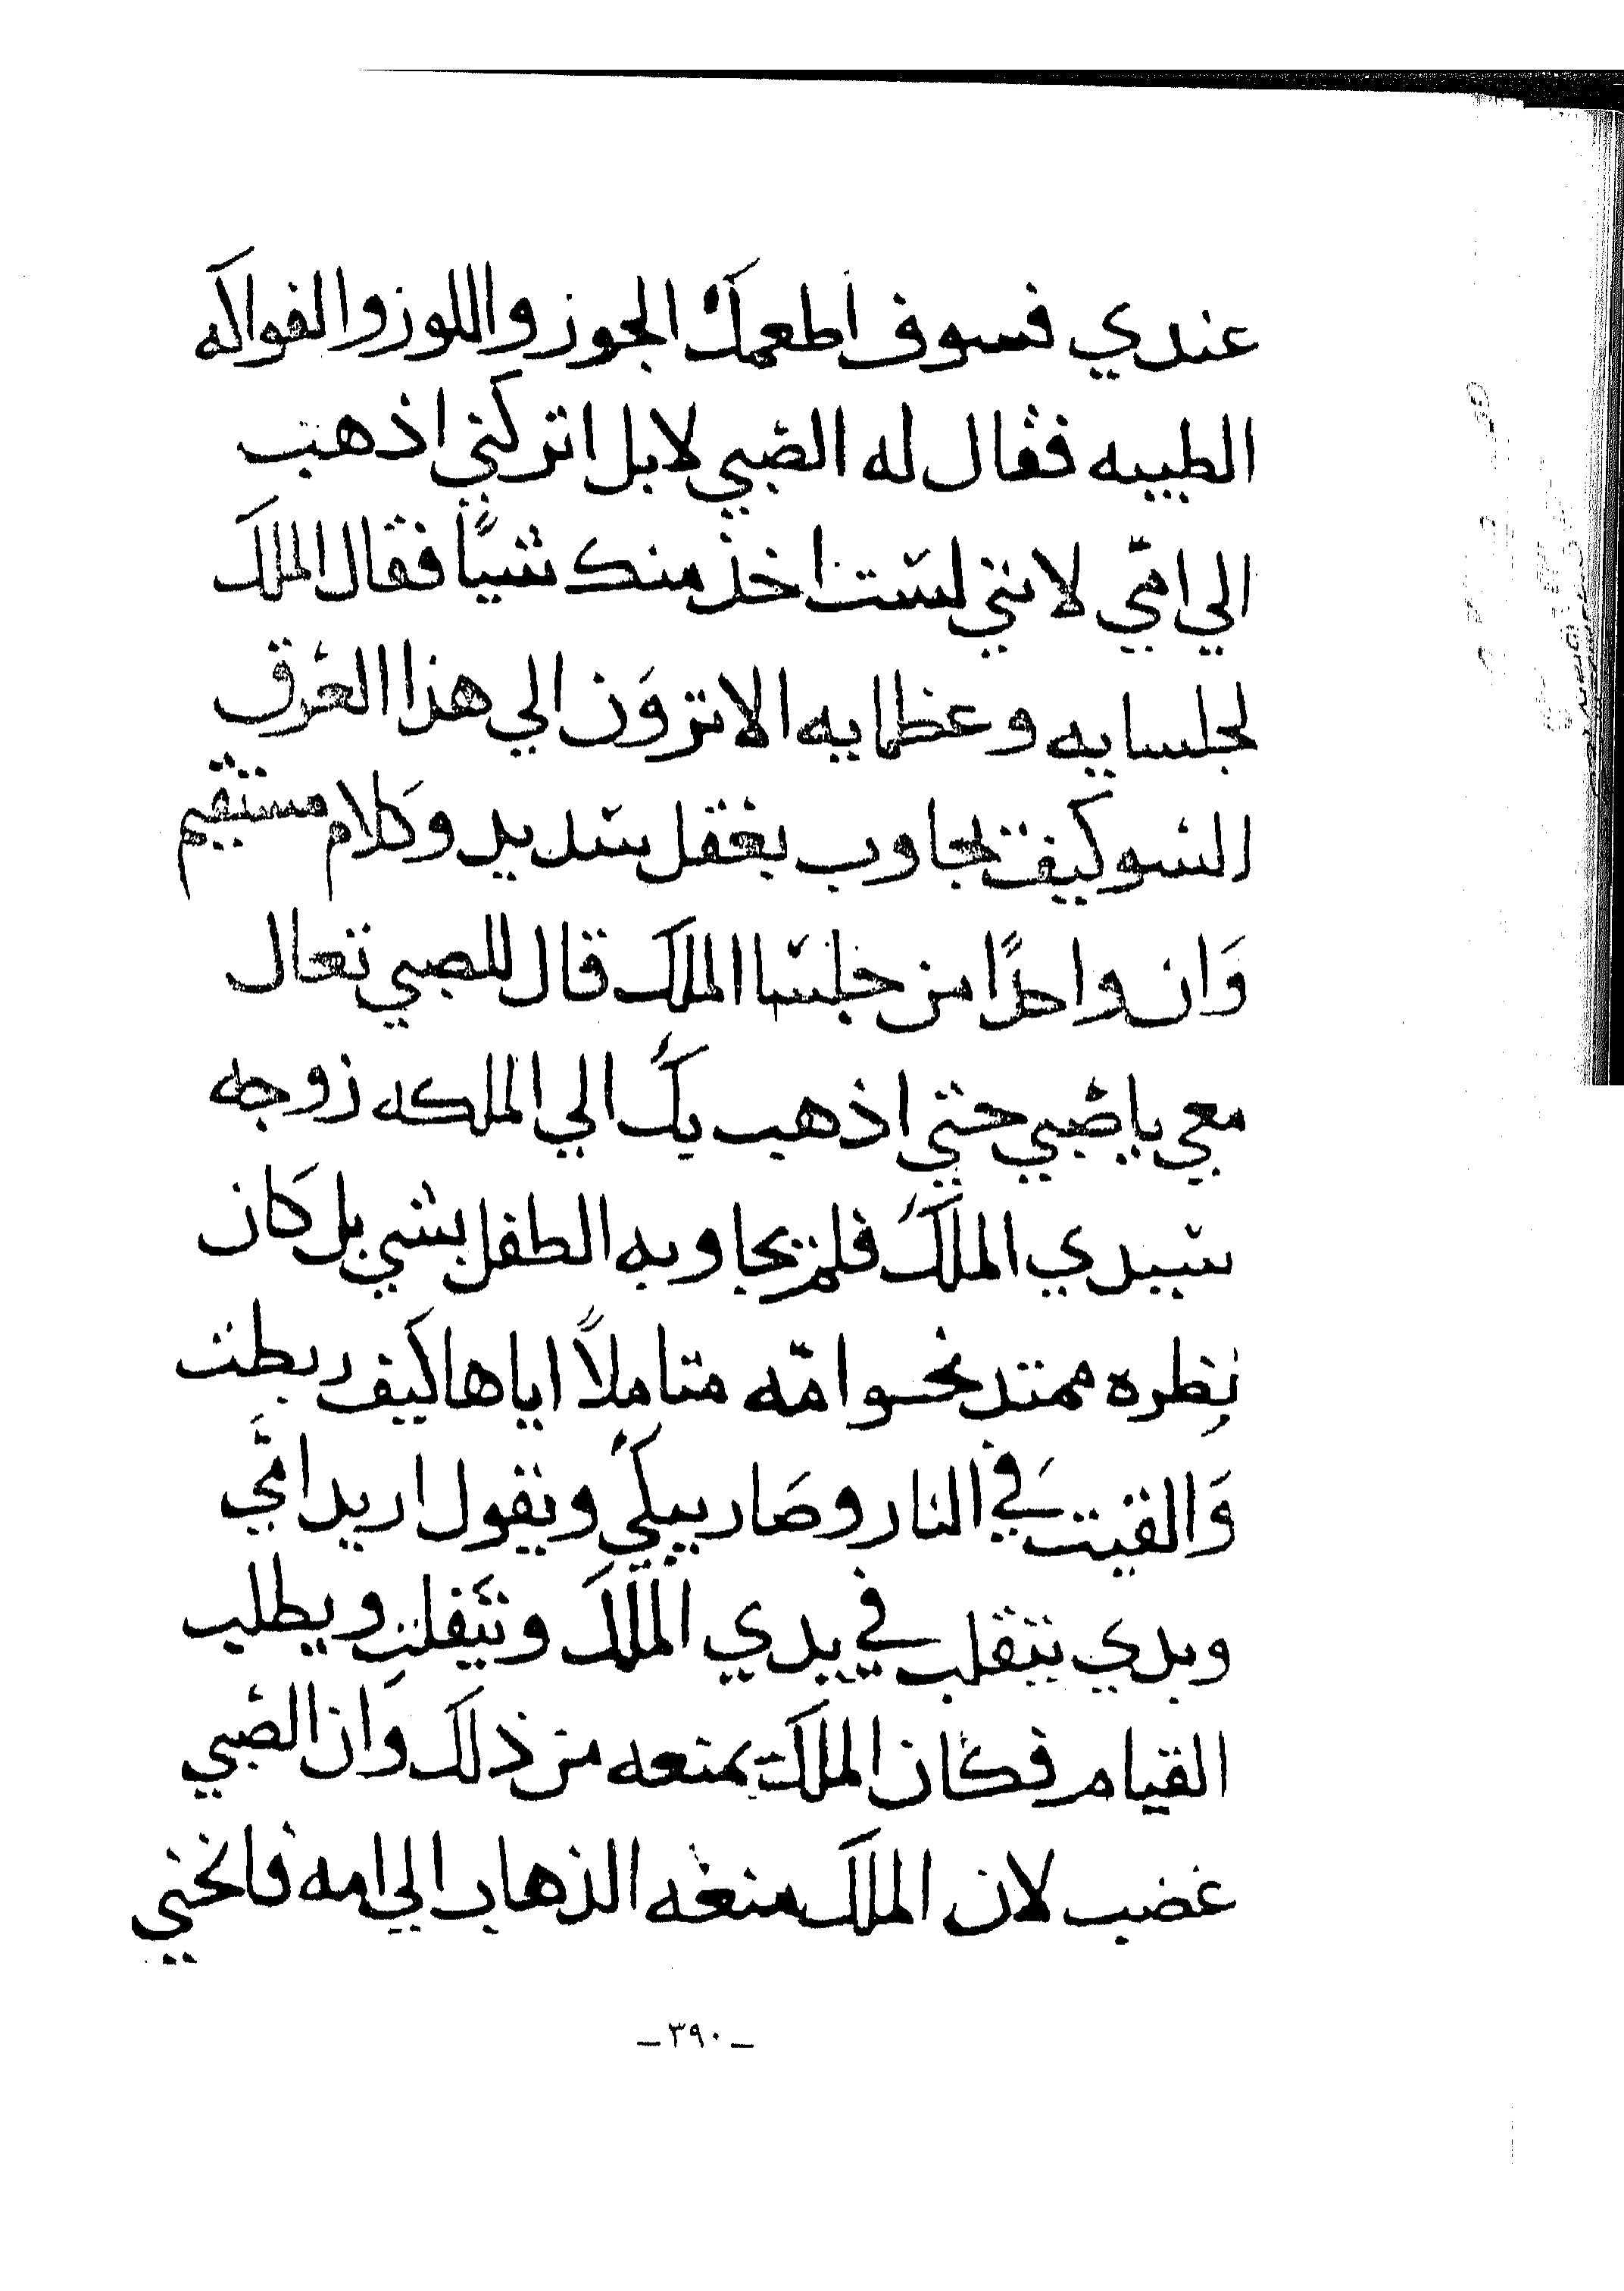 عندي فسوف اطعمك الجوز واللوز والفواكه
الطيبه فقال له الصبي لا بل اتركني اذهب
الي امّي لانني لست اخذ منك شيًا فقال الملك
لجلسايه وعظمايه الا ترَون الي هذا العرق
السو كيف يجاوب بعقل سديد وكلام مستقيم
وَان واحدًا من جلسا الملك قال للصبي تعال
معي يا صبي حتي اذهب بكَ الي الملكه زوجه
سيدي الملكُ فلم يجاوبه الطفل بشي بل كان
نظره ممتد نحو امّه متاملاً اياها كيف ربطت
وَالقيت في النار وصَار يبكي ويقول اريد امّي
وبدي يتقلب في يدي الملك ويتَفلت ويطلب
القيام فكان الملك يمنعه من ذلك وَان الصبي
غضب لان الملك منعه الذهاب الي امه فانحني
ـ ٣٩٠ ـ